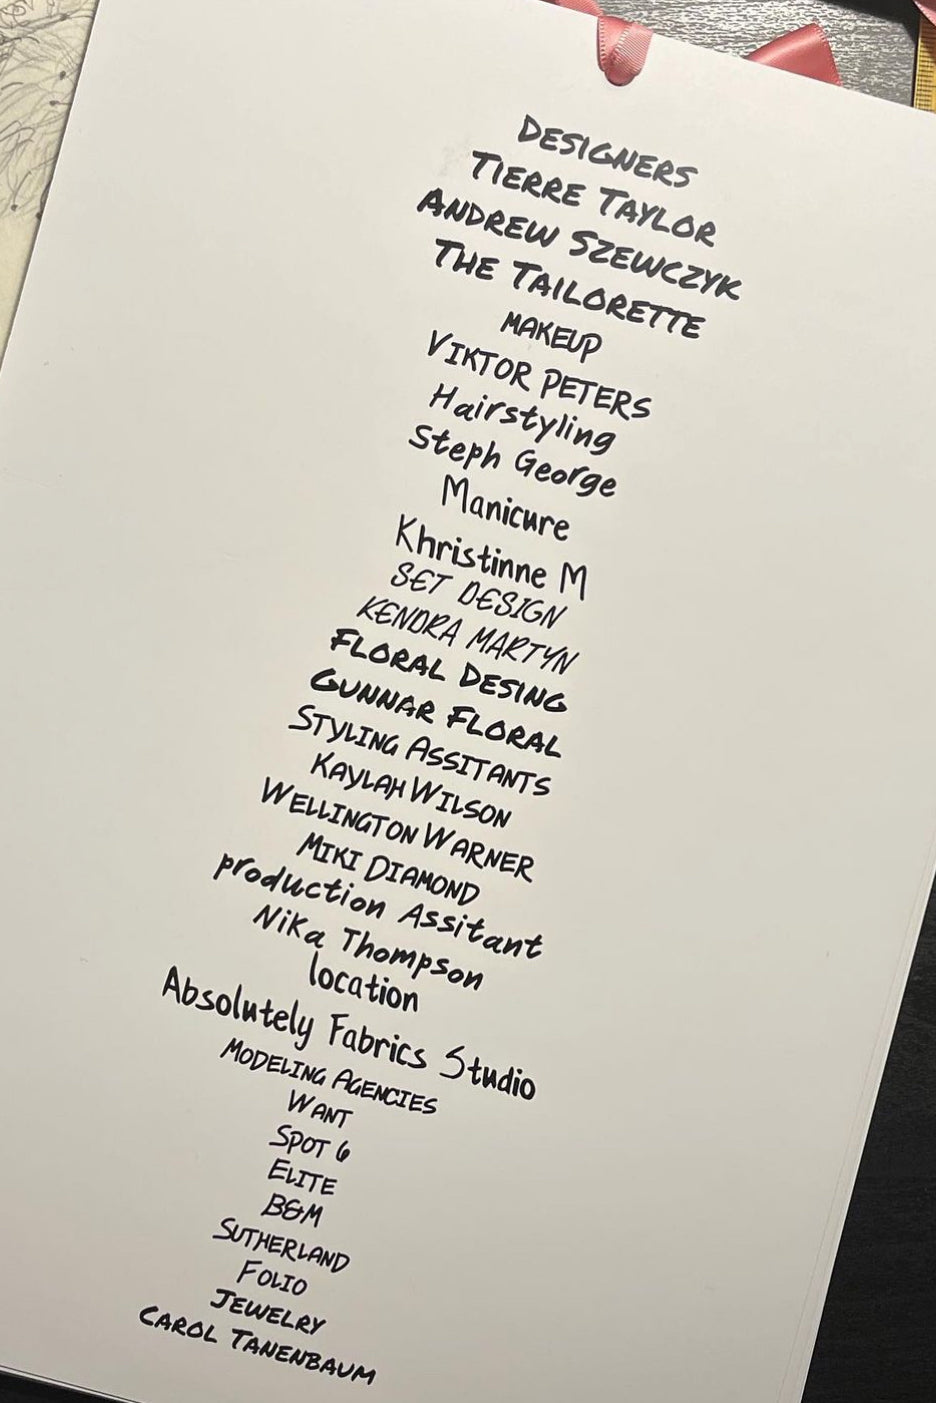 DESIGNERS
TIERRE TAYLOR
ANDREW SZEWCZYK
THE TAILORETTE
MAKEUP
VIKTOR PETERS
Hairstyling
Steph George
Manicure
Khristinne M
SET DESIGN
KENDRA MARTYN
FLORAL DESING
GUNNAR FLORAL
STYLING ASSITANTS
KAYLAH WILSON
WELLINGTON WARNER
MIKI DIAMOND
production Assitant
Nika Thompson
location
Absolutely Fabrics Studio
MODELING AGENCIES
WANT
SPOT 6
ELITE
B&M
SUTHERLAND
FOLIO
JEWELRY
CAROL TANENBAUM